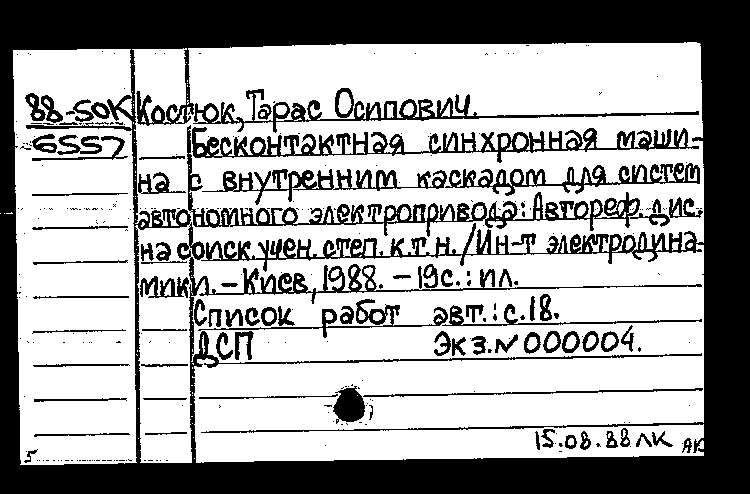 88-50К Костюк, Тарас Осипович.
6557 Бесконтактная синхронная маши-
на с внутренним каскадом для систем
автономного электропривода: Автореф. дис.
на соиск. учен. степ. к.т.н. / Ин-т электродина-
мики. – Киев, 1988. – 19с.: ил.
Список работ авт.: с.18.
ДСП Экз.№ 000004.
15.08.88 ЛК АК
5